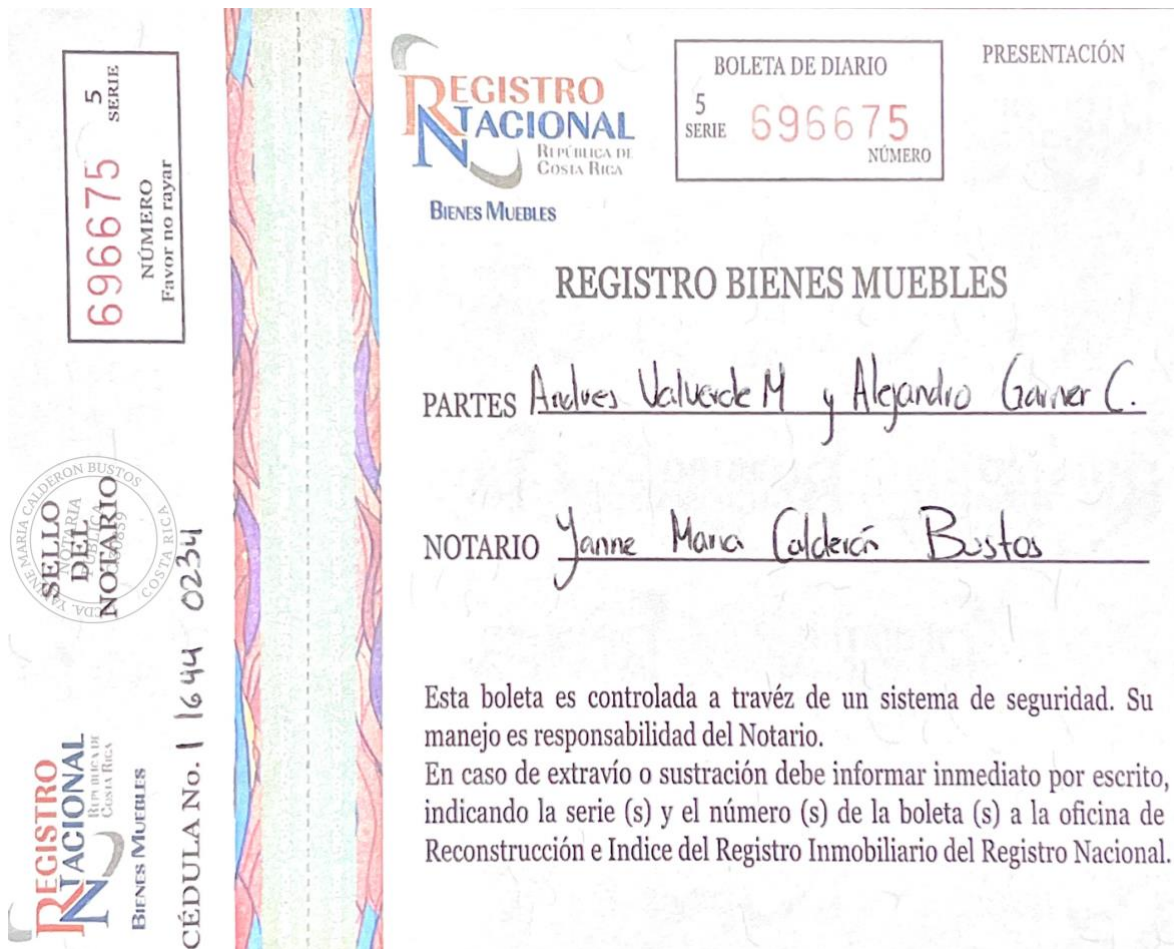 5
SERIE
696675
NÚMERO
Favor no rayar
SELLO
DEL
NOTARIO
MARIA CALDERON BUSTOS
NOTARIA
PUBLICA
COSTA RICA
REGISTRO
NACIONAL
REPÚBLICA DE
COSTA RICA
BIENES MUEBLES
CÉDULA No. 1 1644 0234
REGISTRO
NACIONAL
REPÚBLICA DE
COSTA RICA
BIENES MUEBLES
BOLETA DE DIARIO
5
SERIE
696675
NÚMERO
PRESENTACIÓN
REGISTRO BIENES MUEBLES
PARTES Andres Valverde M y Alejandro C.
NOTARIO Maria Calderón Bustos
Esta boleta es controlada a travéz de un sistema de seguridad. Su
manejo es responsabilidad del Notario.
En caso de extravío o sustración debe informar inmediato por escrito,
indicando la serie (s) y el número (s) de la boleta (s) a la oficina de
Reconstrucción e Indice del Registro Inmobiliario del Registro Nacional.